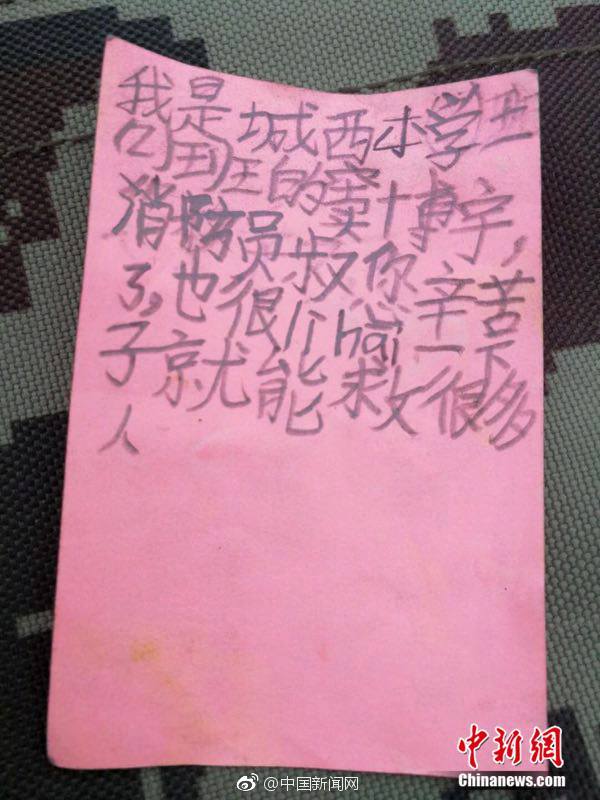 我是城西小学
班的窦博宇，
消防员叔你辛苦
了，也很hai一下
子就能救很多
人
中新网
Chinanews.com
@中国新闻网